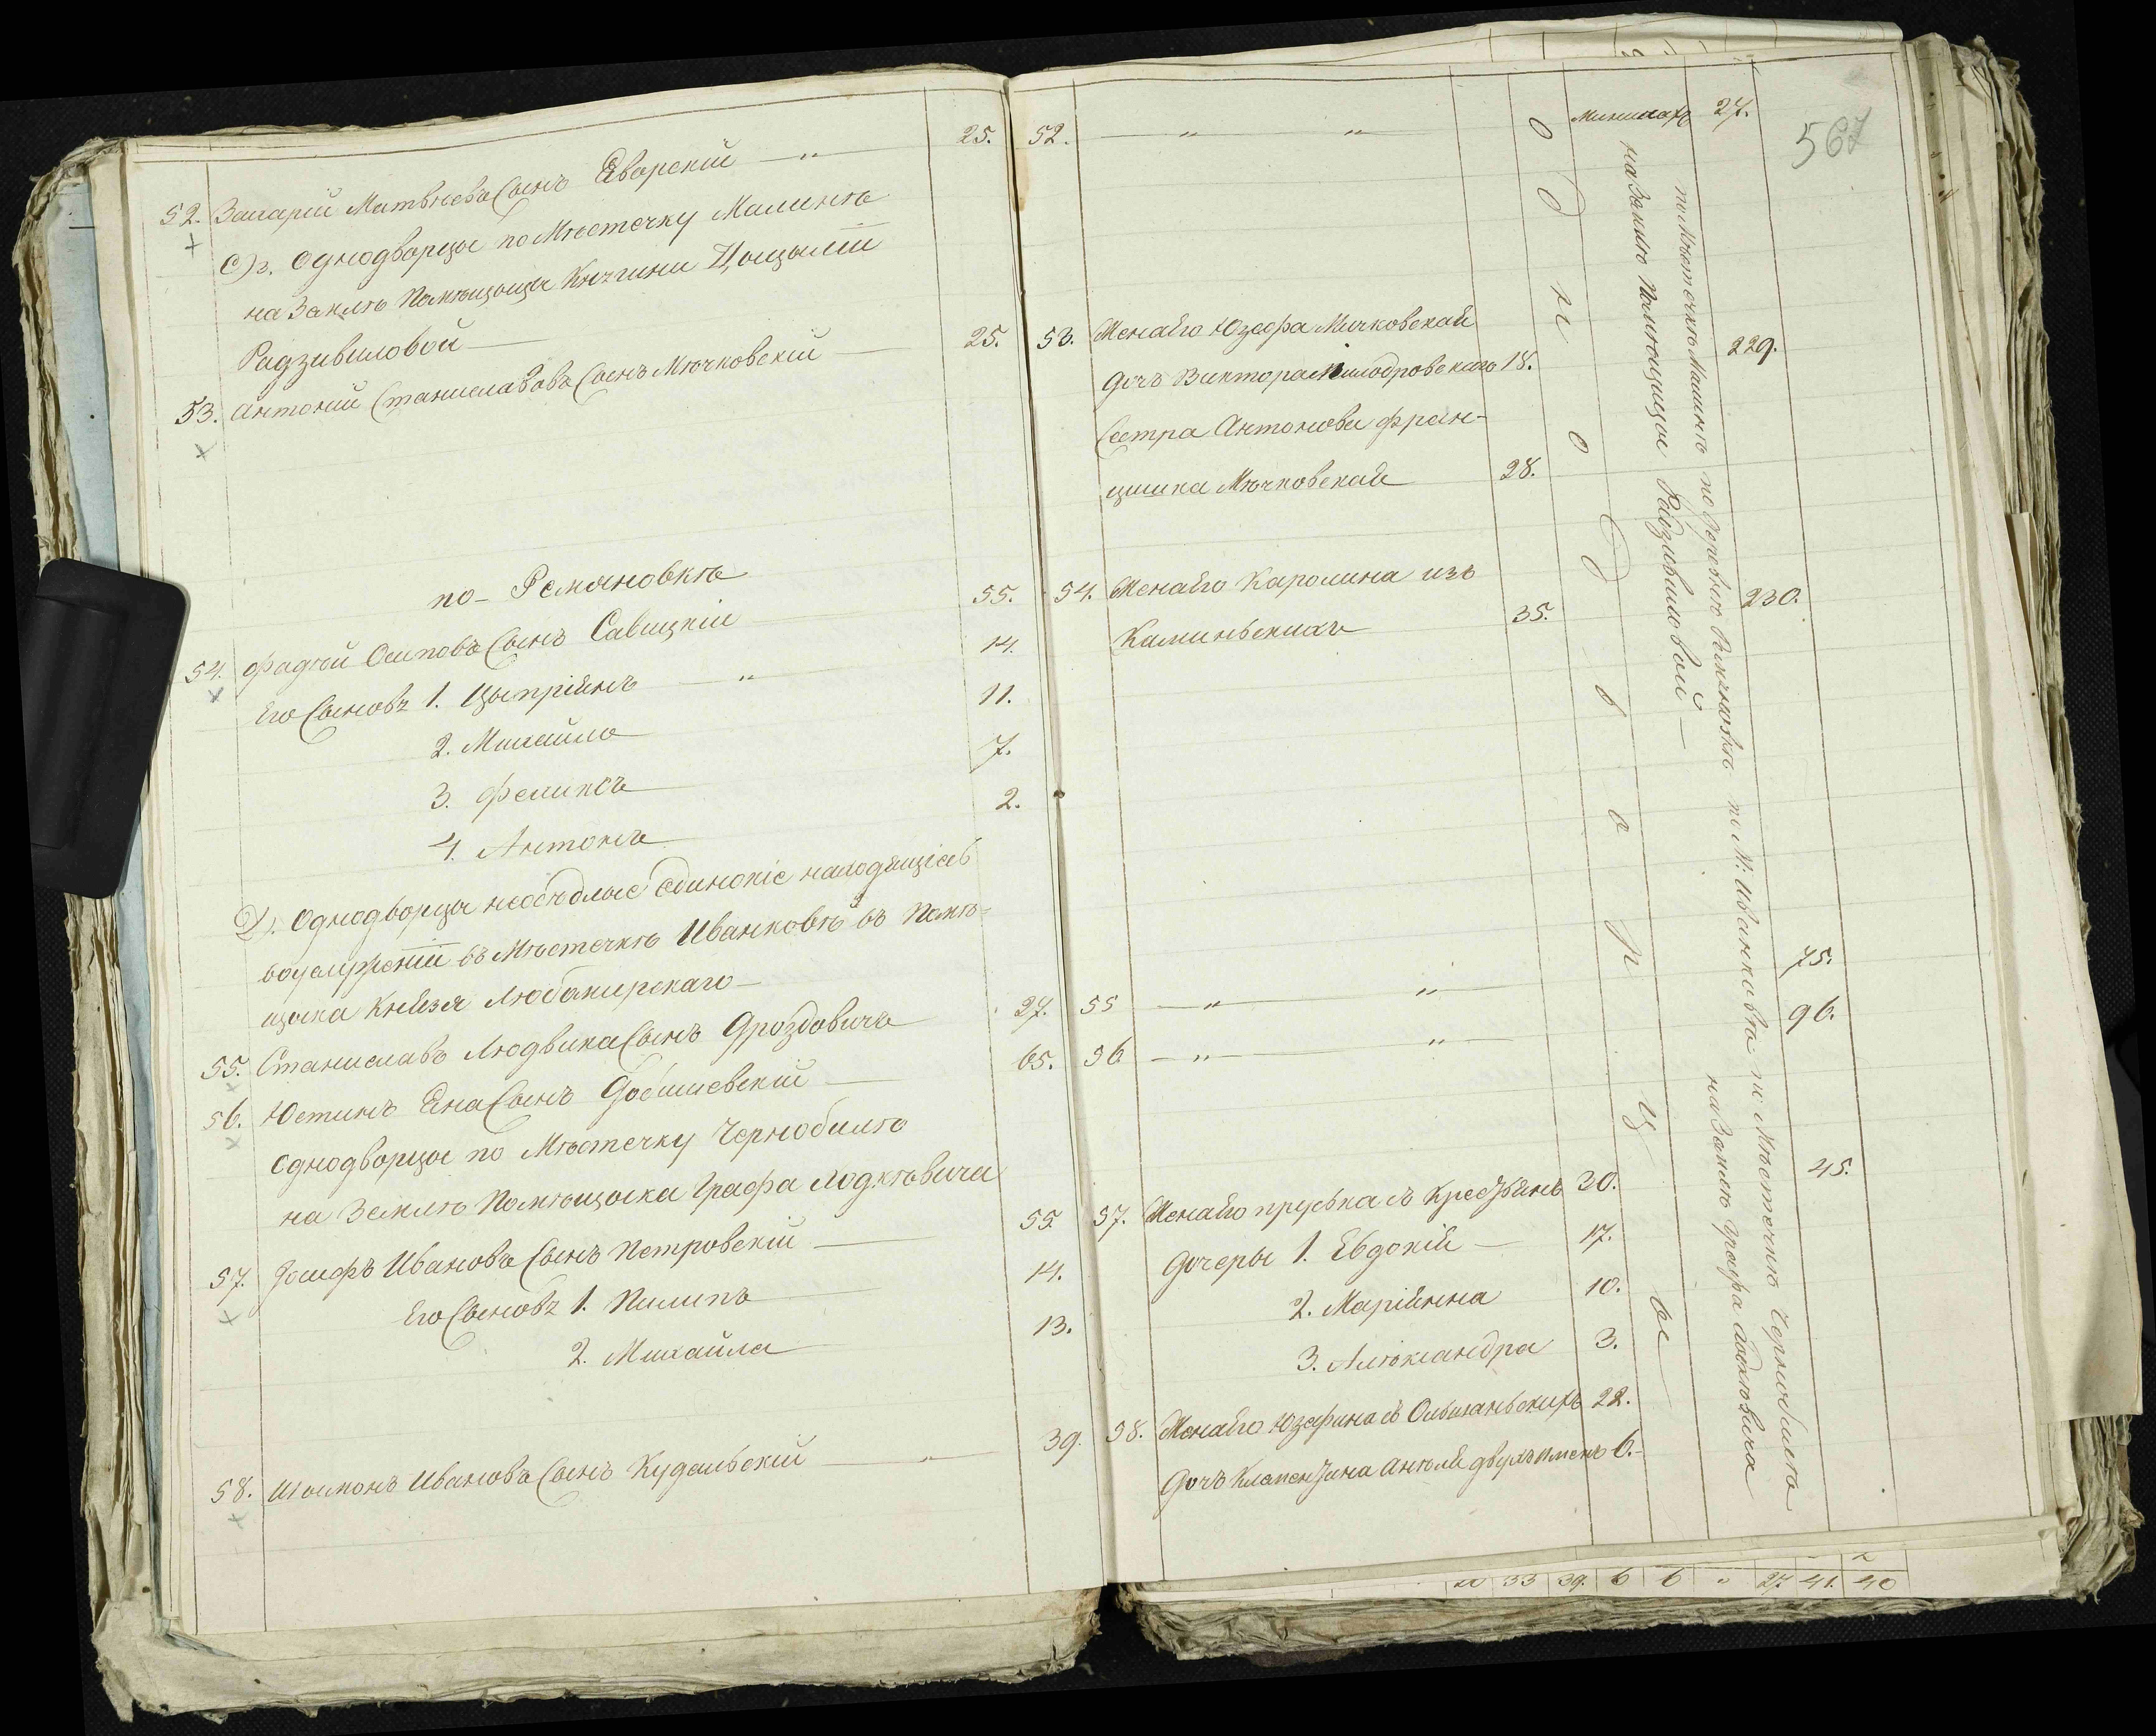 52. Захарій Матвѣевъ Сынъ Яворскій — " 25.
С). Однодворцы по Мѣстечку Малинѣ
на Землѣ Помѣщицы Княгини Цецыліи
Радзивиловой —
53. Антоній Станиславовъ Сынъ Мючковскій — 25.
по — Романовкѣ
54. Фадѣй Осиповъ Сынъ Савицкій 55.
Его Сыновъ 1. Цыпріянъ — " 14.
2. Михайло 11.
3. Феликсъ 7.
4. Антонъ 2.
Д). Однодворцы неосѣдлые Единокіе находящіесь
въ Мѣстечкѣ Иванковѣ въ Помѣ-
щика Князя Любомирскаго —
55. Станиславъ Людвика Сынъ Дроздовичъ 27.
56. Юстинъ Яна Сынъ 65.
Однодворцы по Мѣстечку Чернобылю
на Землѣ Помѣщика Графа Ходкѣвича
57. Іосифъ Ивановъ Сынъ Петровскій — 55
Его Сыновъ 1. Пилипъ 14.
2. Михайла 13.
58. Шымонъ Ивановъ Сынъ Кудельскій — " 39.
52. — " — " —
53. Жена его Юзефа Мичковская
дочъ Виктора 18.
Сестра Антонова Фран-
цишка Мючковская 28.
54. Жена его Каролина изъ
Каминьскихъ 35.
55 — " — " —
56 — " — " —
57. Жена его съ Крестьянъ 30.
Дочеры 1. Евдокія — 17.
2. Маріянна 10.
3. Алѣксандра 3.
58. Жена его Юзефина съ Ольшаньскихъ 22.
Дочъ Клементина Анѣля двухъ Именъ 6.
Однодворцы
на Землѣ Помѣщицы Радзивиловой —
по Мѣстечкѣ Малинѣ по Деревнѣ по М: Иванкавѣ по Мѣстечкѣ Чернобылѣ
на Землѣ Графа Ходкѣвича
27.
229.
230.
75.
96.
45.
567
33 39. 6 6 " 27 41. 40